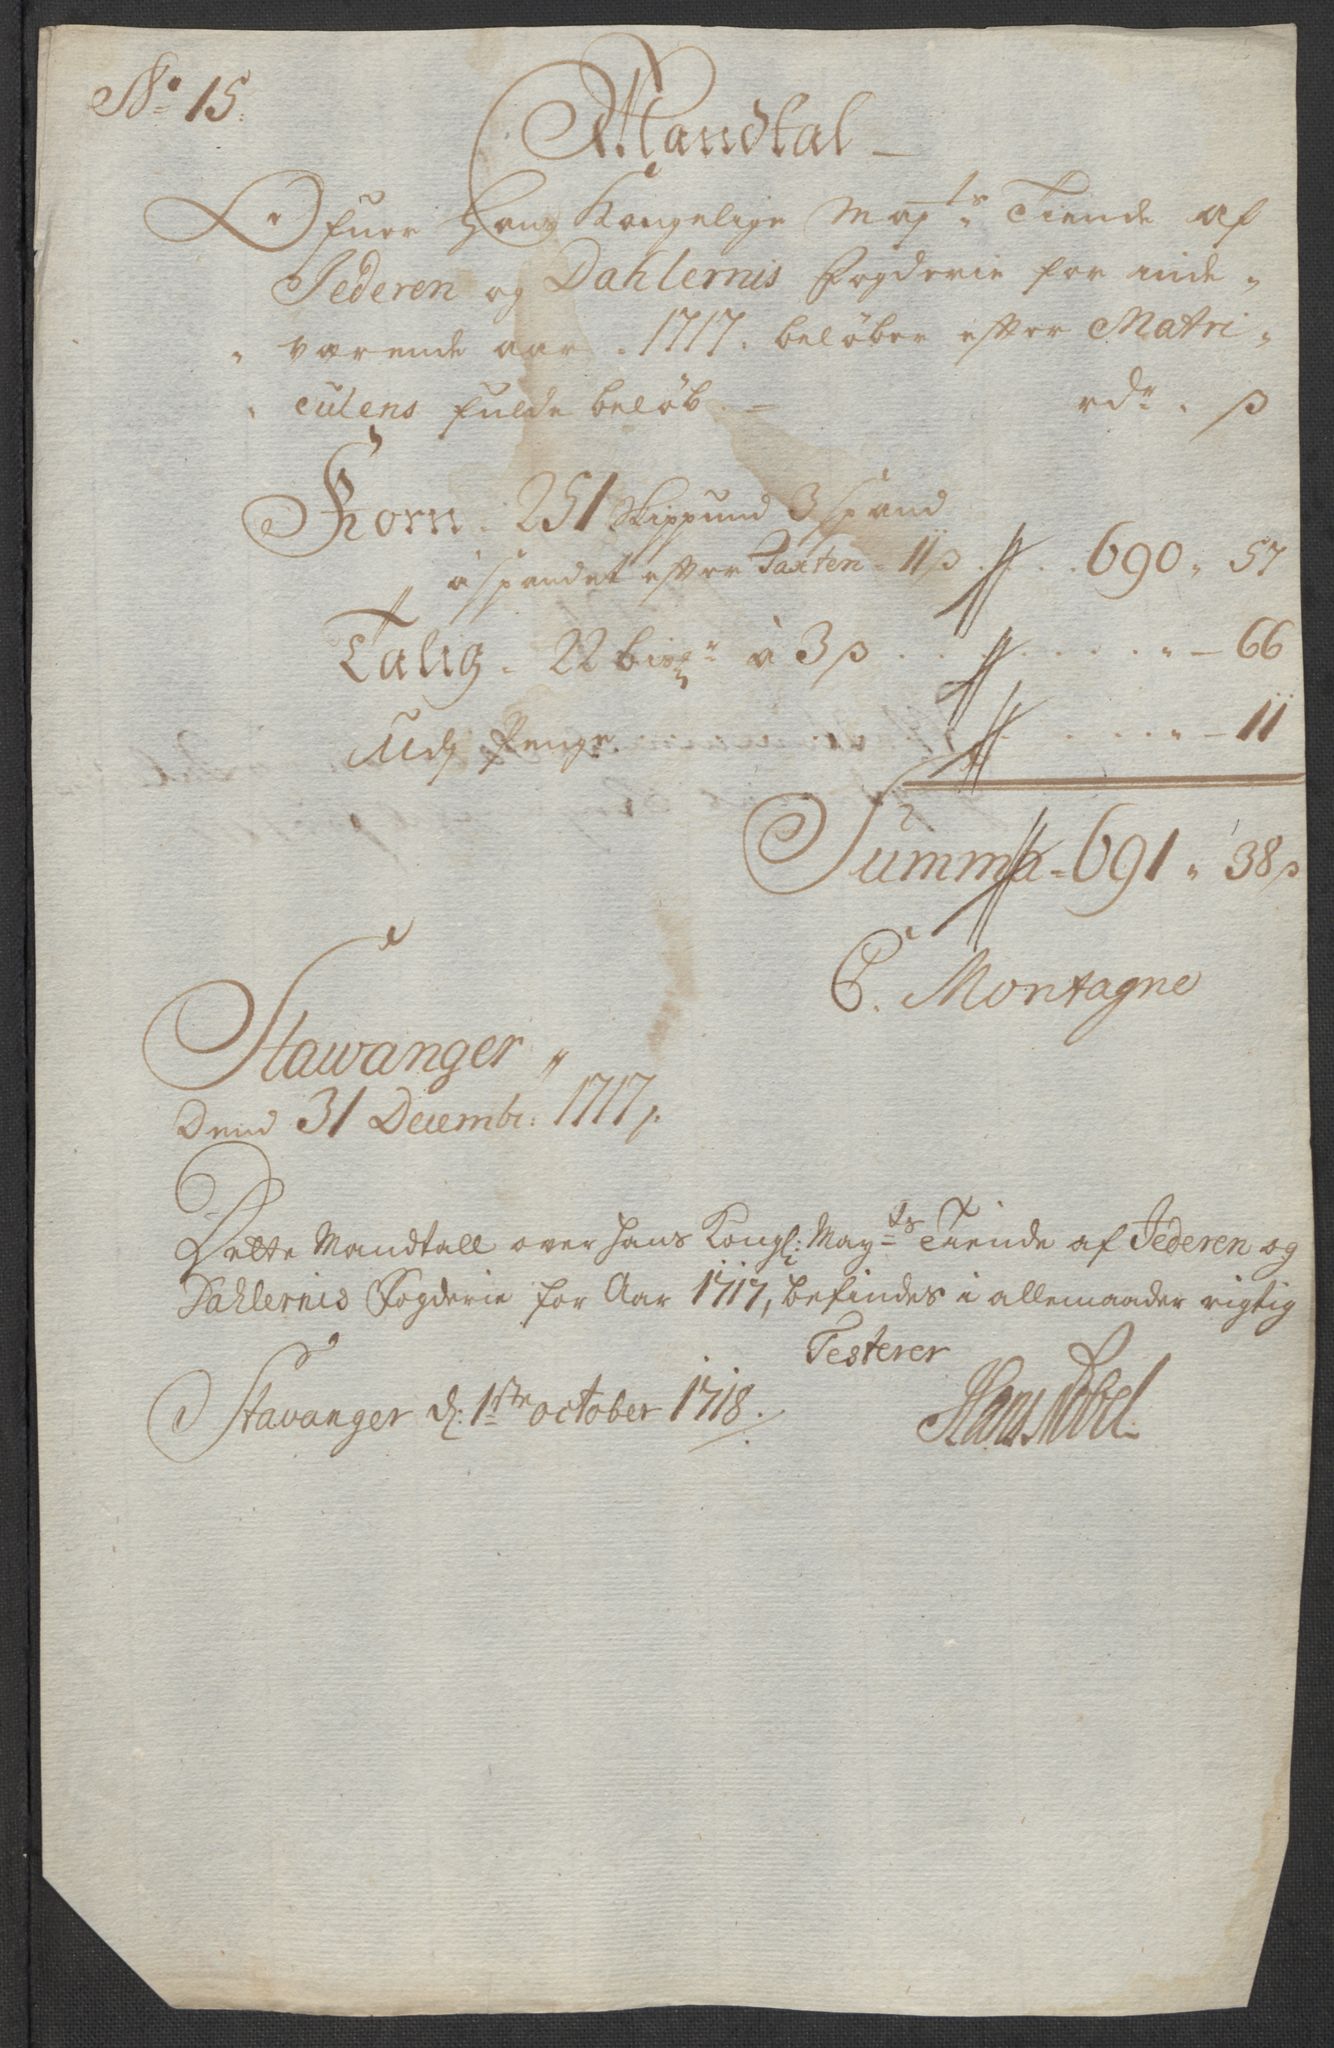 No 15.
Mandtal
Ofuer Hans Kongelige Mayts Tiende af
Jederen og Dahlernis Fogderie for inde-
værende aar . 1717 . beløber efter Matri-
culens fulde beløb. rdr . ß
Korn . 251 Skippund 3 spand
à spandet efter Taxten - 11 ß . . . 690 " 57
Talig . 22 bisr à 3 ß . . . . . . . " - 66
Udj Penge . . . . . " - 11
Summa - 691 " 38 ß
C. Montagne
Stawanger
Dend 31 Decembr: 1717.
Dette Mandtall over hans Kongl: Mayts Tiende af Jederen og
Dahlernis Fogderie for Aar 1717, befindes i allemaader rigtig
Testerer
Stavanger d: 1ste october 1718.
Hans Nobel